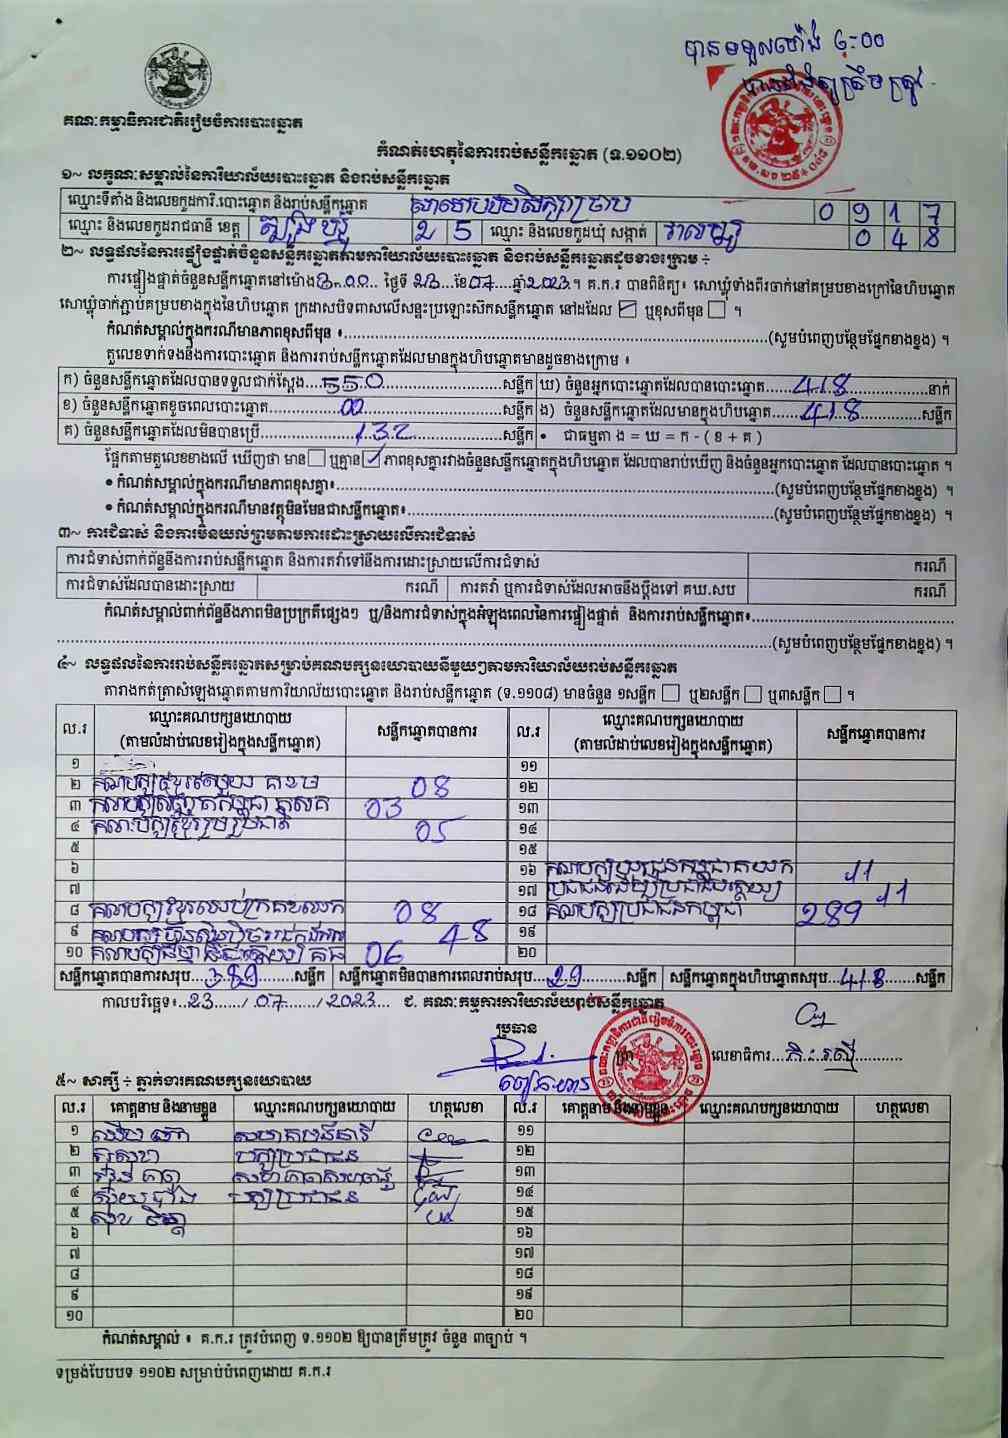 បានទទួលម៉ោង ៤:00
គណៈកម្មាធិការជាតិរៀបចំការបោះឆ្នោត
កំណត់ហេតុនៃការរាប់សន្លឹកឆ្នោត (ទ.១១០២)
១~ លក្ខណៈសម្គាល់នៃការិយាល័យបោះឆ្នោត និងរាប់សន្លឹកឆ្នោត
ឈ្មោះទីតាំង និងលេខកូដការិ.បោះឆ្នោត និងរាប់សន្លឹកឆ្នោត 0 9 1 7
ឈ្មោះ និងលេខកូដរាជធានី ខេត្ត ត្បូងឃ្មុំ 2 5 ឈ្មោះ និងលេខកូដឃុំ សង្កាត់ 0 4 8
២~ លទ្ធផលនៃការផ្ទៀងផ្ទាត់ចំនួនសន្លឹកឆ្នោតតាមការិយាល័យបោះឆ្នោត និងរាប់សន្លឹកឆ្នោតដូចខាងក្រោម ÷
ការផ្ទៀងផ្ទាត់ចំនួនសន្លឹកឆ្នោតនៅម៉ោង 3:00 ថ្ងៃទី 23 ខែ 07 ឆ្នាំ 2023។ គ.ក.រ បានពិនិត្យ៖ សោឃ្លុំទាំងពីរចាក់នៅគម្របខាងក្រៅនៃហិបឆ្នោត
សោឃ្លុំចាក់ភ្ជាប់គម្របខាងក្នុងនៃហិបឆ្នោត ក្រដាសបិទពាសលើសន្ទះប្រឡោះស៊កសន្លឹកឆ្នោត នៅដដែល ☑ ឬខុសពីមុន ☐ ។
កំណត់សម្គាល់ក្នុងករណីមានភាពខុសពីមុន ៖ (សូមបំពេញបន្ថែមផ្នែកខាងខ្នង) ។
តួលេខទាក់ទងនឹងការបោះឆ្នោត និងការរាប់សន្លឹកឆ្នោតដែលមានក្នុងហិបឆ្នោតមានដូចខាងក្រោម ៖
ក) ចំនួនសន្លឹកឆ្នោតដែលបានទទួលជាក់ស្តែង 550 សន្លឹក ឃ) ចំនួនអ្នកបោះឆ្នោតដែលបានបោះឆ្នោត 418 នាក់
ខ) ចំនួនសន្លឹកឆ្នោតខូចពេលបោះឆ្នោត 00 សន្លឹក ង) ចំនួនសន្លឹកឆ្នោតដែលមានក្នុងហិបឆ្នោត 418 សន្លឹក
គ) ចំនួនសន្លឹកឆ្នោតដែលមិនបានប្រើ 132 សន្លឹក • ជាធម្មតា ង = ឃ = ក - ( ខ + គ )
ផ្អែកតាមតួលេខខាងលើ ឃើញថា មាន ☐ ឬគ្មាន ☑ ភាពខុសគ្នារវាងចំនួនសន្លឹកឆ្នោតក្នុងហិបឆ្នោត ដែលបានរាប់ឃើញ និងចំនួនអ្នកបោះឆ្នោត ដែលបានបោះឆ្នោត ។
• កំណត់សម្គាល់ក្នុងករណីមានភាពខុសគ្នា៖ (សូមបំពេញបន្ថែមផ្នែកខាងខ្នង) ។
• កំណត់សម្គាល់ក្នុងករណីមានវត្ថុមិនមែនជាសន្លឹកឆ្នោត៖ (សូមបំពេញបន្ថែមផ្នែកខាងខ្នង) ។
៣~ ការជំទាស់ និងការមិនយល់ព្រមតាមការដោះស្រាយលើការជំទាស់
ការជំទាស់ពាក់ព័ន្ធនឹងការរាប់សន្លឹកឆ្នោត និងការតវ៉ាទៅនឹងការដោះស្រាយលើការជំទាស់ ករណី
ការជំទាស់ដែលបានដោះស្រាយ ករណី ការតវ៉ា ឬការជំទាស់ដែលអាចនឹងប្តឹងទៅ គឃ.សប ករណី
កំណត់សម្គាល់ពាក់ព័ន្ធនឹងភាពមិនប្រក្រតីផ្សេងៗ ឬ/និងការជំទាស់ក្នុងអំឡុងពេលនៃការផ្ទៀងផ្ទាត់ និងការរាប់សន្លឹកឆ្នោត៖
(សូមបំពេញបន្ថែមផ្នែកខាងខ្នង) ។
៤~ លទ្ធផលនៃការរាប់សន្លឹកឆ្នោតសម្រាប់គណបក្សនយោបាយនីមួយៗតាមការិយាល័យរាប់សន្លឹកឆ្នោត
តារាងកត់ត្រាសំឡេងឆ្នោតតាមការិយាល័យបោះឆ្នោត និងរាប់សន្លឹកឆ្នោត (ទ.១១០៨) មានចំនួន ១សន្លឹក ☐ ឬ២សន្លឹក ☐ ឬ៣សន្លឹក ☐ ។
ល.រ ឈ្មោះគណបក្សនយោបាយ (តាមលំដាប់លេខរៀងក្នុងសន្លឹកឆ្នោត) សន្លឹកឆ្នោតបានការ ល.រ ឈ្មោះគណបក្សនយោបាយ (តាមលំដាប់លេខរៀងក្នុងសន្លឹកឆ្នោត) សន្លឹកឆ្នោតបានការ
១ ១១
២ គណបក្សខ្មែរតែមួយ 08 ១២
៣ 03 ១៣
៤ គណបក្សខ្មែររួបរួមជាតិ 05 ១៤
៥ ១៥
៦ ១៦ គណបក្សយុវជនកម្ពុជា គយក 11
៧ ១៧ 11
៨ 08 ១៨ គណបក្សប្រជាជនកម្ពុជា 289
៩ គណបក្សហ៊្វុនស៊ិនប៉ិច 48 ១៩
១០ 06 ២០
សន្លឹកឆ្នោតបានការសរុប 389 សន្លឹក សន្លឹកឆ្នោតមិនបានការពេលរាប់សរុប 29 សន្លឹក សន្លឹកឆ្នោតក្នុងហិបឆ្នោតសរុប 418 សន្លឹក
កាលបរិច្ឆេទ៖ 23 / 07 / 2023 ជ. គណៈកម្មការការិយាល័យរាប់សន្លឹកឆ្នោត
ប្រធាន
លេខាធិការ
៥~ សាក្សី ÷ ភ្នាក់ងារគណបក្សនយោបាយ
ល.រ គោត្តនាម និងនាមខ្លួន ឈ្មោះគណបក្សនយោបាយ ហត្ថលេខា ល.រ គោត្តនាម និងនាមខ្លួន ឈ្មោះគណបក្សនយោបាយ ហត្ថលេខា
១ ១១
២ បក្សប្រជាជន ១២
៣ ១៣
៤ បក្សប្រជាជន ១៤
៥ ១៥
៦ ១៦
៧ ១៧
៨ ១៨
៩ ១៩
១០ ២០
កំណត់សម្គាល់ ៖ គ.ក.រ ត្រូវបំពេញ ទ.១១០២ ឱ្យបានត្រឹមត្រូវ ចំនួន ៣ច្បាប់ ។
ទម្រង់បែបបទ ១១០២ សម្រាប់បំពេញដោយ គ.ក.រ